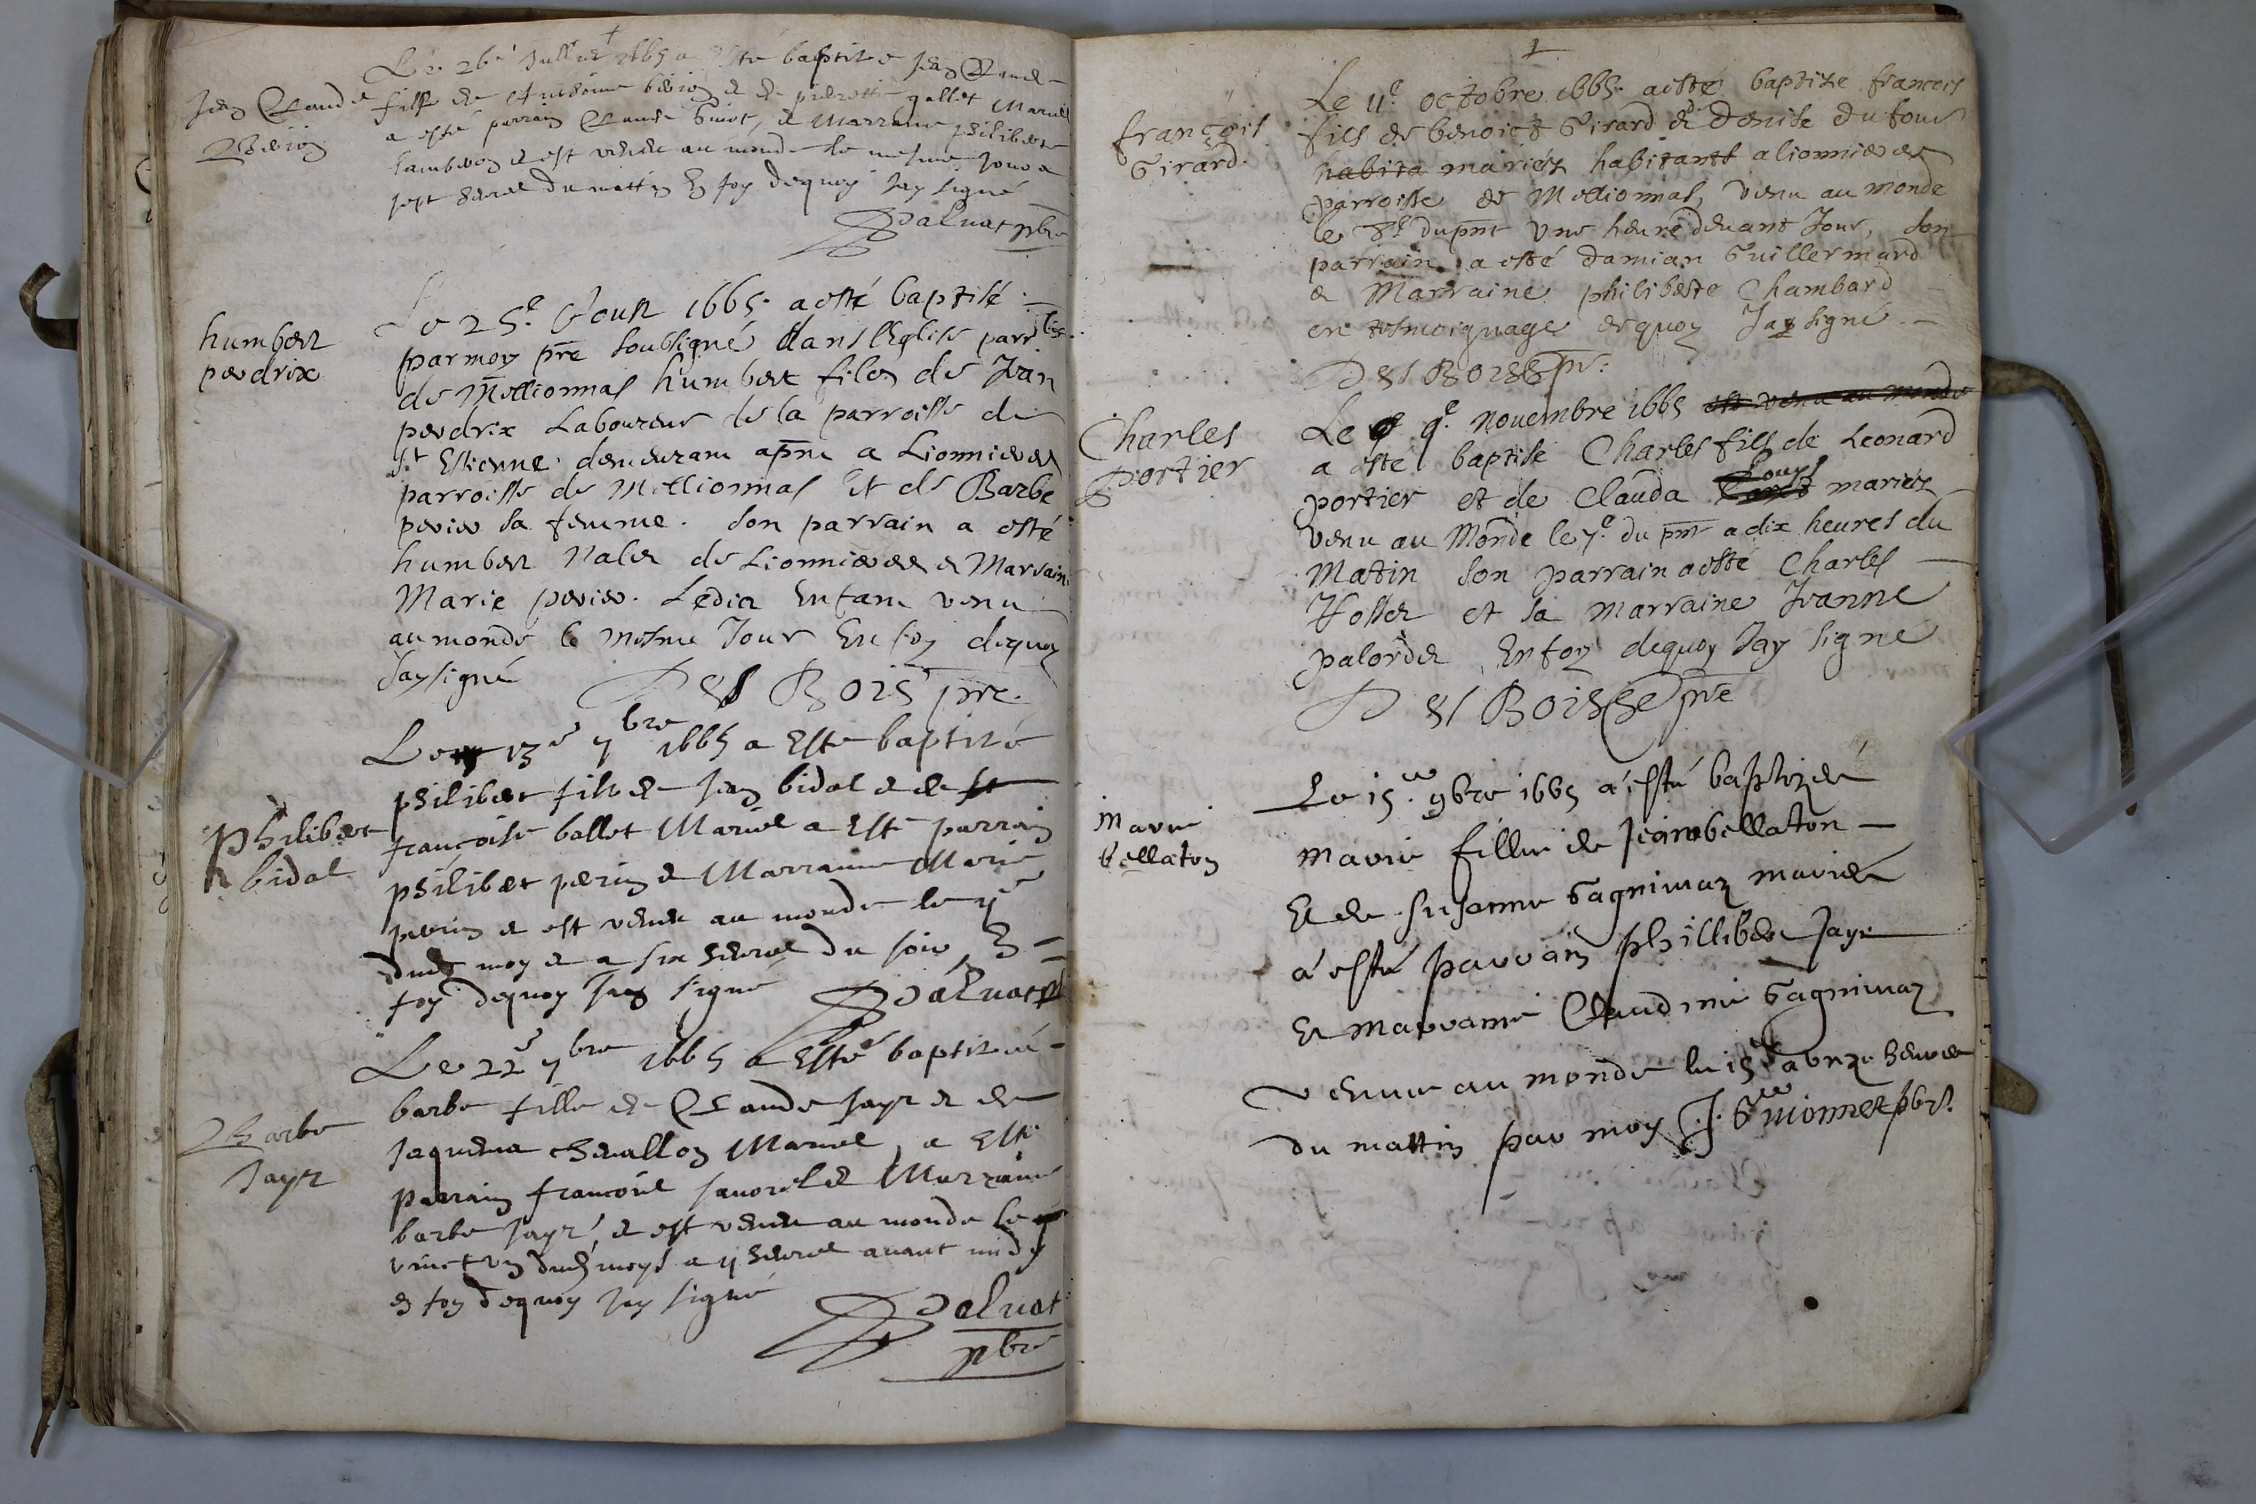 Le 26e Jullet 1665 a esté baptize Jean Claude
Jean Claude
fils de Anthoine et de pierrette gallet Mariés
a esté parrain Claude et Marraine philiberte
et est venu au monde le mesme jour a
sept heures du mattin En foy dequoy Jay signé
pbre
humbert
perdrix
Le 25e 1665 a esté baptisé
par moy pre soubsigné dans l'Eglise parr
de Meillionnas humbert filz de Jean
perdrix Laboureur de la parroisse de
St Estienne demeurant apnt a Lionnieres
parroisse de Meillionnas Et de Barbe
perier sa femme. Son parrain a esté
humbert de Lionnieres et Marraine
Marie perier. Ledict Enfant venu
au monde le mesme Jour En foy dequoy
Jay signé Des Bois pre.
Le 13e 7bre 1665 a Esté baptizé
philibert
bidal
philibert filz de Jean bidal et de
françoise ballet Mariés a Esté parrain
philibert perin et Marraine Marie
perin et est venu au monde le 11e
dud moy et a six heures du soir, En
foy dequoy Jay signé
Le 22e 7bre 1665 a Esté baptizée
Barbe
Jayr
barbe fille de Claude Jayr et de
Jaquema chevallon Mariés, a Esté
parrain françois et Marraine
barbe Jayr, et est venue au monde le
vinct un dud moys a 11 heures avant midy
en foy dequoy Jay signé
pbre
françois
Girard
Le 11e octobre 1665. a esté baptize françois
fils de benoict Girard et denise du four
habita mariés habitants a lionnieres
parroisse de Meillionnas, venu au monde
le 8e du pnt une heure devant Jour, son
parrain a esté damian Guillermard
et Marraine philiberte Chambard
en tesmoignage dequoy Jay signé
Des Bois pr.
Charles
portier
Le 9e. novembre 1665 est venu au monde
a esté baptise Charles fils de Leonard
portier et de Clauda mariés
venu au Monde le 7e du pnt a dix heures du
Matin son parrain a esté Charles
et sa marraine Jeanne
En foy dequoy Jay signé
Des Bois pre
Marie
bellaton
Le 15e 9bre 1665 a esté baptizée
marie fille de Jean bellaton
Et de susanne Gagnieux mariés
a esté parrain phillibert Jayr
Et marraine Claudine Gagnieux
venue au monde le 15e a unze heures
du mattin par moy J. Guionnet pbr.